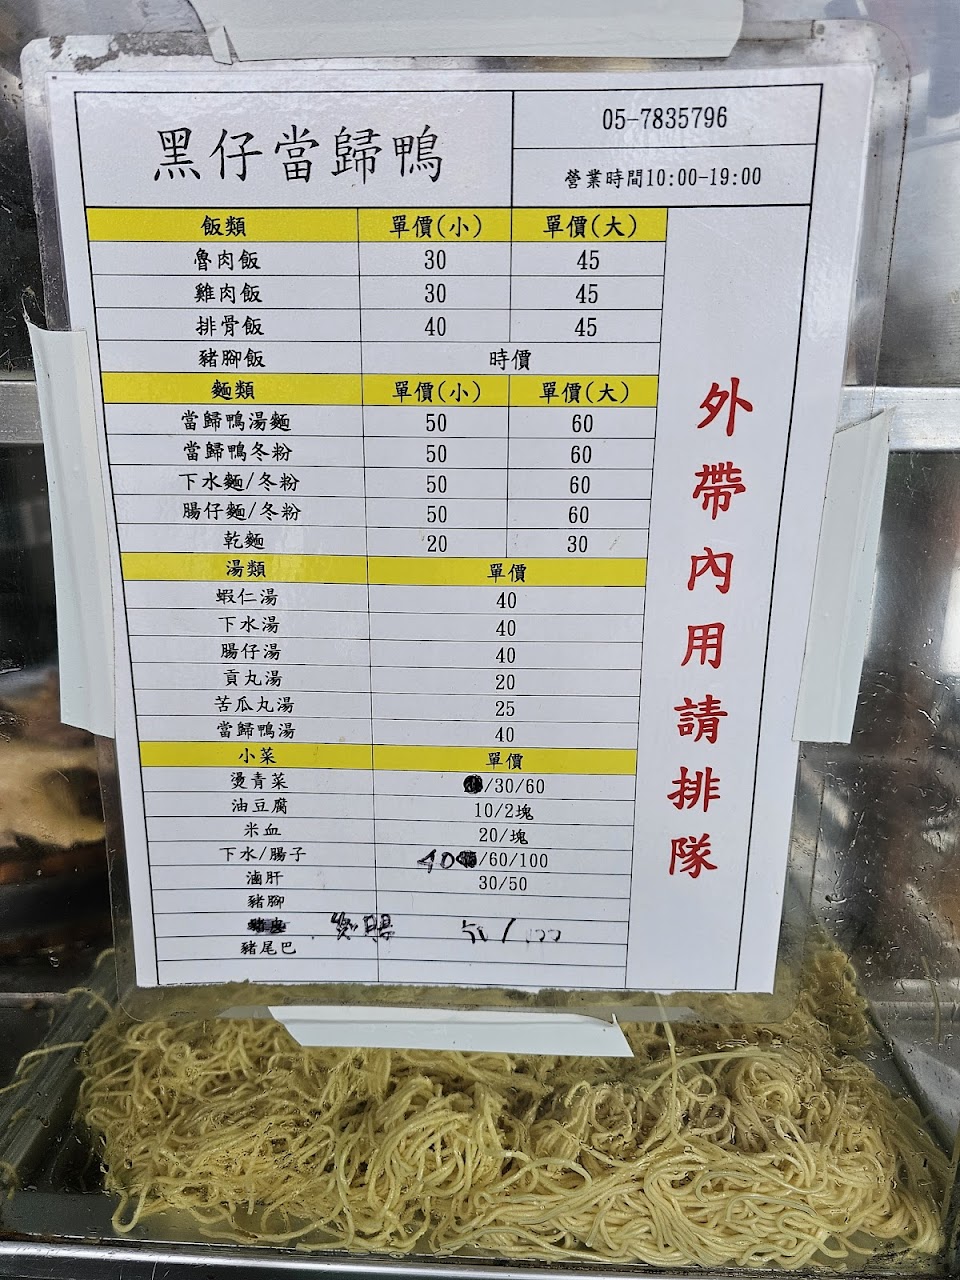 黑仔當歸鴨
05-7835796
營業時間10:00-19:00
飯類 單價(小) 單價(大)
魯肉飯 30 45
雞肉飯 30 45
排骨飯 40 45
豬腳飯 時價
麵類 單價(小) 單價(大)
當歸鴨湯麵 50 60
當歸鴨冬粉 50 60
下水麵/冬粉 50 60
腸仔麵/冬粉 50 60
乾麵 20 30
湯類 單價
蝦仁湯 40
下水湯 40
腸仔湯 40
貢丸湯 20
苦瓜丸湯 25
當歸鴨湯 40
小菜 單價
燙青菜 /30/60
油豆腐 10/2塊
米血 20/塊
下水/腸子 40/60/100
滷肝 30/50
豬腳
50/100
豬尾巴
外帶內用請排隊